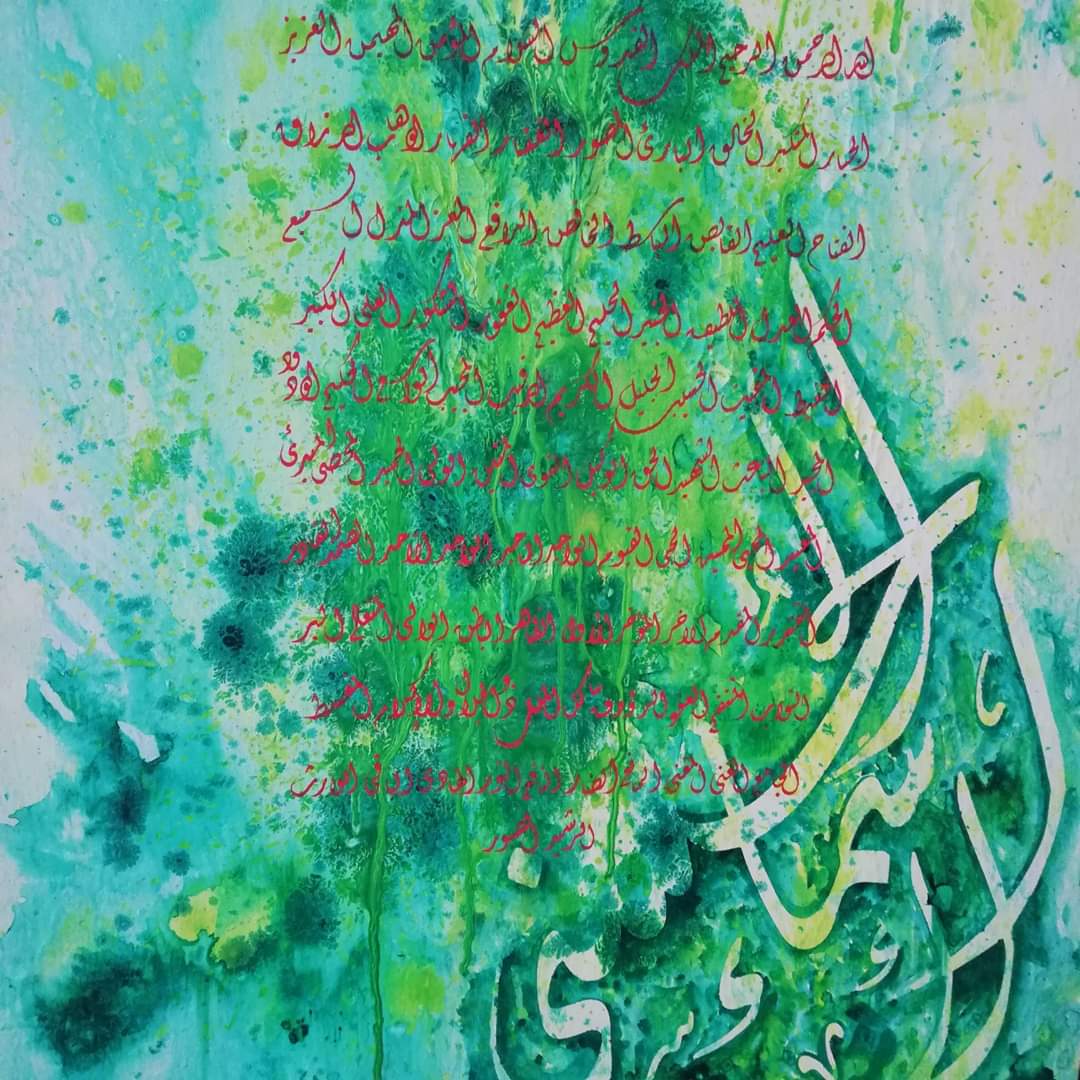 الله الرحمن الرحيم الملك القدوس السلام المؤمن المهيمن العزيز
الجبار المتكبر الخالق البارئ المصور الغفار القهار الوهاب الرزاق
الفتاح العليم القابض الباسط الخافض الرافع المعز المذل السميع
الحكم العدل اللطيف الخبير الحليم العظيم الغفور الشكور العلي الكبير
الحفيظ المقيت الحسيب الجليل الكريم الرقيب المجيب الواسع الحكيم الودود
المجيد الباعث الشهيد الحق الوكيل القوى المتين الولى الحميد المحصى المبدئ
المعيد المحيى المميت الحي القيوم الواجد الماجد الواحد الأحد الصمد القادر
المقتدر المقدم المؤخر الأول الآخر الظاهر الباطن الوالي المتعالي البر
التواب المنتقم العفو الرؤوف مالك الملك ذو الجلال والإكرام المقسط
الجامع الغنى المغنى المانع الضار النافع النور الهادى الباقى الوارث
الرشيد الصبور
الأسماء
الحسنى